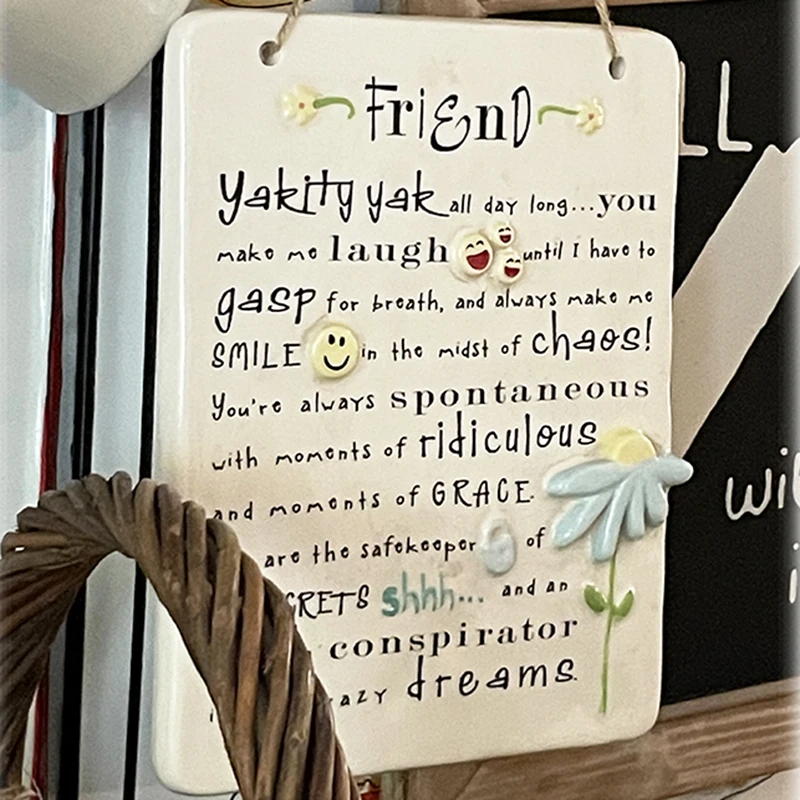 FriEnD
Yakity yak all day long...you
make me laugh until I have to
gasp for breath, and always make me
SMILE in the midst of chaos!
You're always spontaneous
with moments of ridiculous
and moments of GRACE
are the safekeeper of
shhh... and an
conspirator
dreams.